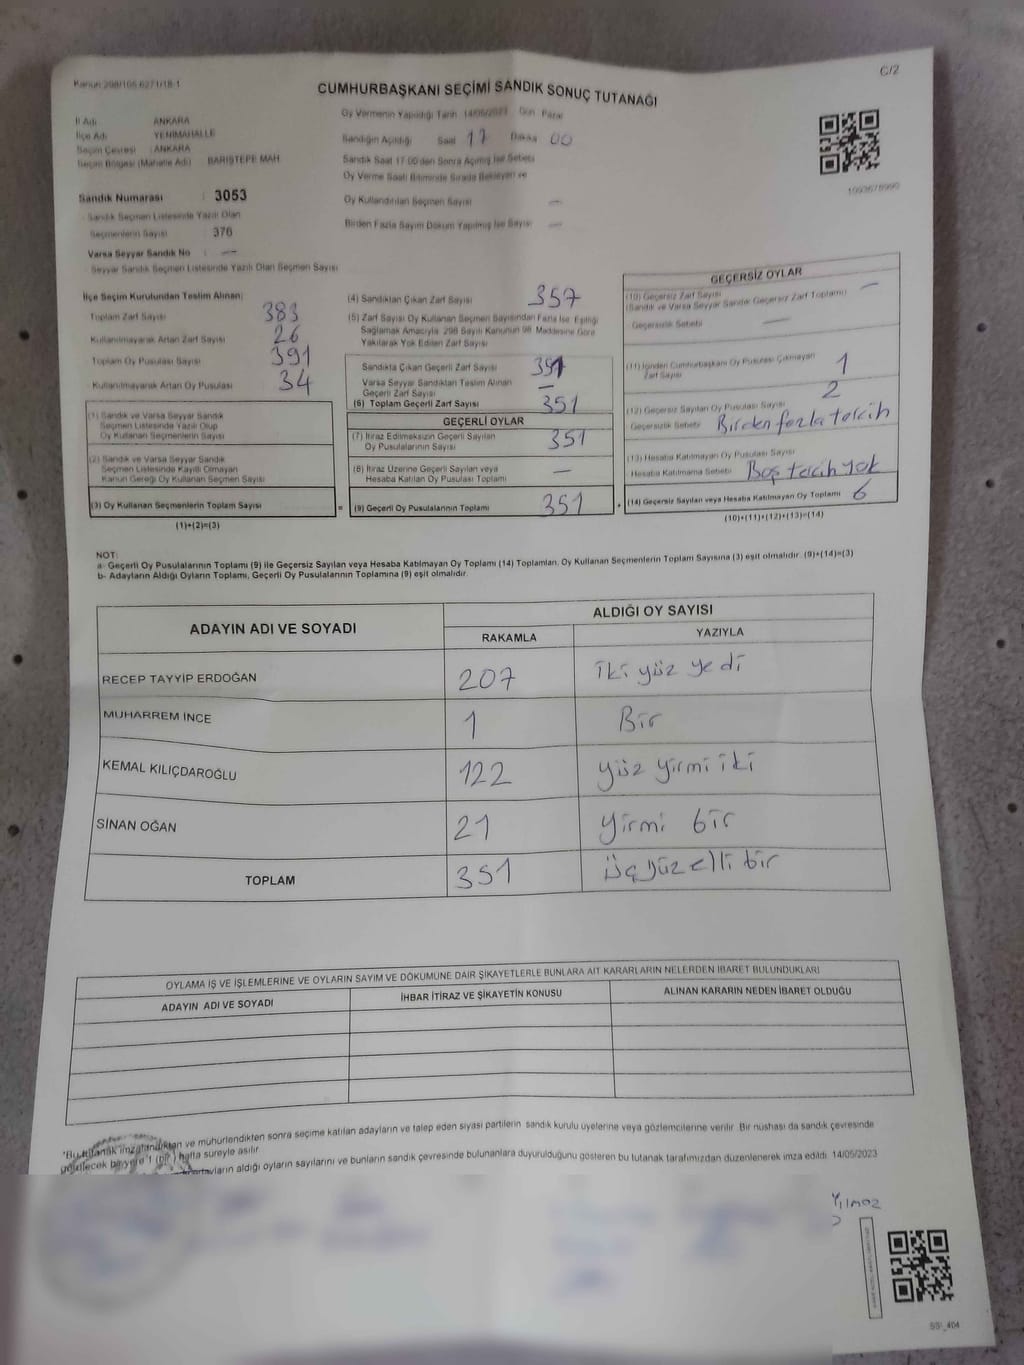 Kanun:298/105.6271/18-1
C/2
CUMHURBAŞKANI SEÇİMİ SANDIK SONUÇ TUTANAĞI
İl Adı : ANKARA
İlçe Adı : YENİMAHALLE
Seçim Çevresi : ANKARA
Seçim Bölgesi (Mahalle Adı) : BARIŞTEPE MAH
Sandık Numarası : 3053
Sandık Seçmen Listesinde Yazılı Olan
Seçmenlerin Sayısı : 376
Varsa Seyyar Sandık No : —
Seyyar Sandık Seçmen Listesinde Yazılı Olan Seçmen Sayısı
Oy Vermenin Yapıldığı Tarih 14/05/2023 Gün Pazar
Sandığın Açıldığı Saat 17 Dakika 00
Sandık Saat 17:00'den Sonra Açılmış İse Sebebi
Oy Verme Saati Bitiminde Sırada Bekleyen ve
Oy Kullandırılan Seçmen Sayısı —
Birden Fazla Sayım Döküm Yapılmış İse Sayısı —
1093678990
İlçe Seçim Kurulundan Teslim Alınan;
Toplam Zarf Sayısı 383
Kullanılmayarak Artan Zarf Sayısı 26
Toplam Oy Pusulası Sayısı 391
Kullanılmayarak Artan Oy Pusulası 34
(1) Sandık ve Varsa Seyyar Sandık
Seçmen Listesinde Yazılı Olup
Oy Kullanan Seçmenlerin Sayısı
(2) Sandık ve Varsa Seyyar Sandık
Seçmen Listesinde Kayıtlı Olmayan
Kanun Gereği Oy Kullanan Seçmen Sayısı
(3) Oy Kullanan Seçmenlerin Toplam Sayısı
(1)+(2)=(3)
(4) Sandıktan Çıkan Zarf Sayısı 357
(5) Zarf Sayısı Oy Kullanan Seçmen Sayısından Fazla İse, Eşitliği
Sağlamak Amacıyla, 298 Sayılı Kanunun 98. Maddesine Göre
Yakılarak Yok Edilen Zarf Sayısı
Sandıkta Çıkan Geçerli Zarf Sayısı 351
Varsa Seyyar Sandıktan Teslim Alınan
Geçerli Zarf Sayısı —
(6) Toplam Geçerli Zarf Sayısı 351
GEÇERLİ OYLAR
(7) İtiraz Edilmeksizin Geçerli Sayılan
Oy Pusulalarının Sayısı 351
(8) İtiraz Üzerine Geçerli Sayılan veya
Hesaba Katılan Oy Pusulası Toplamı —
= (9) Geçerli Oy Pusulalarının Toplamı 351
GEÇERSİZ OYLAR
(10) Geçersiz Zarf Sayısı
(Sandık ve Varsa Seyyar Sandık Geçersiz Zarf Toplamı) —
Geçersizlik Sebebi —
(11) İçinden Cumhurbaşkanı Oy Pusulası Çıkmayan
Zarf Sayısı 1
(12) Geçersiz Sayılan Oy Pusulası Sayısı 2
Geçersizlik Sebebi Birden fazla tercih
(13) Hesaba Katılmayan Oy Pusulası Sayısı
Hesaba Katılmama Sebebi Boş tercih yok
+ (14) Geçersiz Sayılan veya Hesaba Katılmayan Oy Toplamı 6
(10)+(11)+(12)+(13)=(14)
NOT:
a- Geçerli Oy Pusulalarının Toplamı (9) ile Geçersiz Sayılan veya Hesaba Katılmayan Oy Toplamı (14) Toplamları, Oy Kullanan Seçmenlerin Toplam Sayısına (3) eşit olmalıdır. (9)+(14)=(3)
b- Adayların Aldığı Oyların Toplamı, Geçerli Oy Pusulalarının Toplamına (9) eşit olmalıdır.
ADAYIN ADI VE SOYADI
ALDIĞI OY SAYISI
RAKAMLA YAZIYLA
RECEP TAYYİP ERDOĞAN 207 iki yüz yedi
MUHARREM İNCE 1 Bir
KEMAL KILIÇDAROĞLU 122 yüz yirmi iki
SİNAN OĞAN 21 yirmi bir
TOPLAM 351 üçyüz elli bir
OYLAMA İŞ VE İŞLEMLERİNE VE OYLARIN SAYIM VE DÖKÜMÜNE DAİR ŞİKAYETLERLE BUNLARA AİT KARARLARIN NELERDEN İBARET BULUNDUKLARI
ADAYIN ADI VE SOYADI İHBAR İTİRAZ VE ŞİKAYETİN KONUSU ALINAN KARARIN NEDEN İBARET OLDUĞU
"Bu tutanak imzalandıktan ve mühürlendikten sonra seçime katılan adayların ve talep eden siyasi partilerin sandık kurulu üyelerine veya gözlemcilerine verilir. Bir nüshası da sandık çevresinde
görülecek bir yere 1 (bir) hafta süreyle asılır.
aldığı oyların sayılarını ve bunların sandık çevresinde bulunanlara duyurulduğunu gösteren bu tutanak tarafımızdan düzenlenerek imza edildi. 14/05/2023
Yılmaz